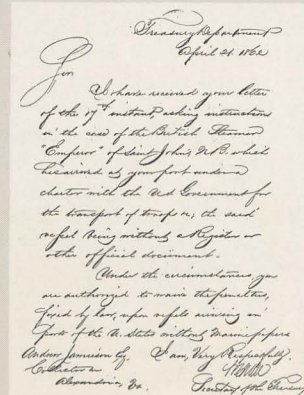 Treasury Department
April 21. 1862
Sir
I have received your letter
of the 17th instant, asking instructions
in the case of the British Steamer
"Emperor" of Saint John's, N.B. which
has arrived at your port under a
charter with the Ud Government for
the transport of troops &c; the said
vessel being without a Register or
other official document.
Under the circumstances, you
are authorized to waive the penalties,
fixed by law, upon vessels arriving in
ports of the U. States without Marine papers
I am, Very Respectfully,
Andrew Jamieson Esq.
Collector &c
Secretary of the Treasury
Alexandria, Va.